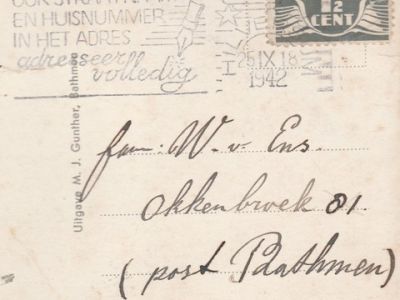 OOK STRAAT NAAM
EN HUISNUMMER
IN HET ADRES
adresseer
volledig
25 IX 18
1942
½
CENT
Uitgave M. J. Gunther, Bathmen
fam: W. v. Ens.
Okkenbroek 81.
(post Bathmen)